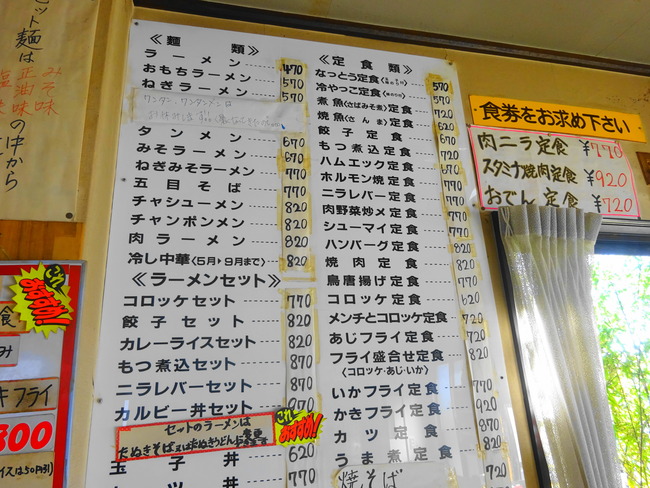 セット麺は
みそ味
正油味
塩味
の中から
《麺類》
ラーメン 470
おもちラーメン 570
ねぎラーメン 570
タンメン 670
みそラーメン 670
ねぎみそラーメン 770
五目そば 770
チャシューメン 820
チャンポンメン 820
肉ラーメン 820
冷し中華(5月・9月まで) 820
《ラーメンセット》
コロッケセット 770
餃子セット 820
カレーライスセット 820
もつ煮込セット 870
ニラレバーセット 870
カルビー丼セット 970
セットのラーメンは
たぬきそば又はたぬきうどんに変更
これおすすめ!
玉子丼 620
770
《定食類》
なっとう定食 570
冷やっこ定食 570
煮魚(さばみそ煮)定食 770
焼魚(さんま)定食 620
餃子定食 670
もつ煮込定食 720
ハムエッグ定食 670
ホルモン焼定食 770
ニラレバー定食 770
肉野菜炒メ定食 770
シューマイ定食 770
ハンバーグ定食 820
焼肉定食 820
鳥唐揚げ定食 820
コロッケ定食 620
メンチとコロッケ定食 720
あじフライ定食 720
フライ盛合せ定食 820
(コロッケ・あじ・いか)
いかフライ定食 770
かきフライ定食 920
カツ定食 870
うま煮定食 820
焼そば 720
食券をお求め下さい
肉ニラ定食 ¥770
スタミナ焼肉定食 ¥920
おでん定食 ¥720
おすすめ!
食
キフライ
300
イスは50円引